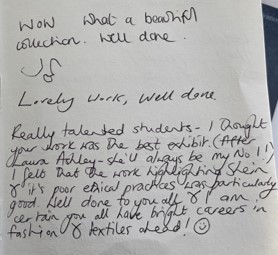 Wow what a beautiful
collection. Well done.
Lovely work, well done.
Really talented students - I thought
your work was the best exhibit. (After
Laura Ashley - she'll always be my No 1!)
I felt that the work highlighting Shein
& it's poor ethical practices was particularly
good. Well done to you all & I am
certain you all have bright careers in
fashion & textiles ahead! ☺